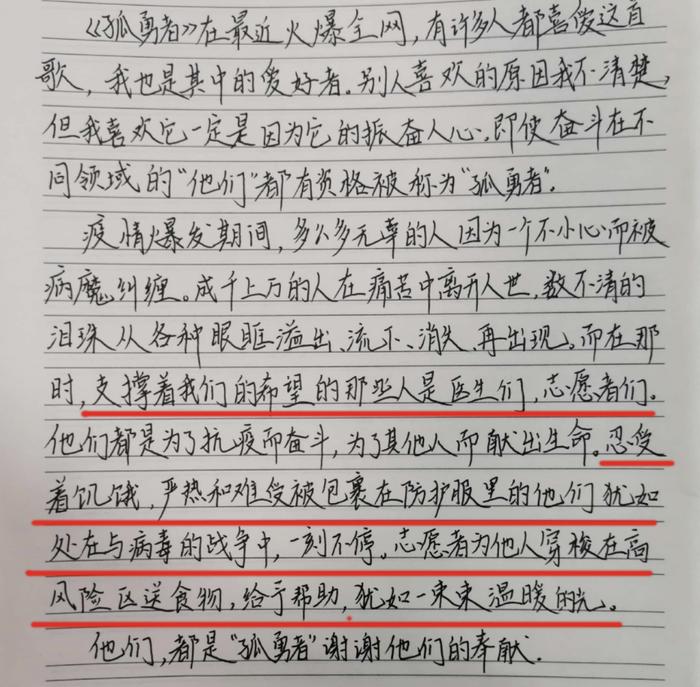 《孤勇者》在最近火爆全网，有许多人都喜爱这首
歌，我也是其中的爱好者。别人喜欢的原因我不清楚，
但我喜欢它一定是因为它的振奋人心。即使奋斗在不
同领域的“他们”都有资格被称为“孤勇者”。
疫情爆发期间，多么多无辜的人因为一个不小心而被
病魔纠缠。成千上万的人在痛苦中离开人世，数不清的
泪珠从各种眼眶溢出、流下、消失、再出现。而在那
时，支撑着我们的希望的那些人是医生们，志愿者们。
他们都是为了抗疫而奋斗，为了其他人而献出生命。忍受
着饥饿，严热和难受被包裹在防护服里的他们犹如
处在与病毒的战争中，一刻不停。志愿者为他人穿梭在高
风险区送食物，给予帮助，犹如一束束温暖的光。
他们，都是“孤勇者”谢谢他们的奉献.